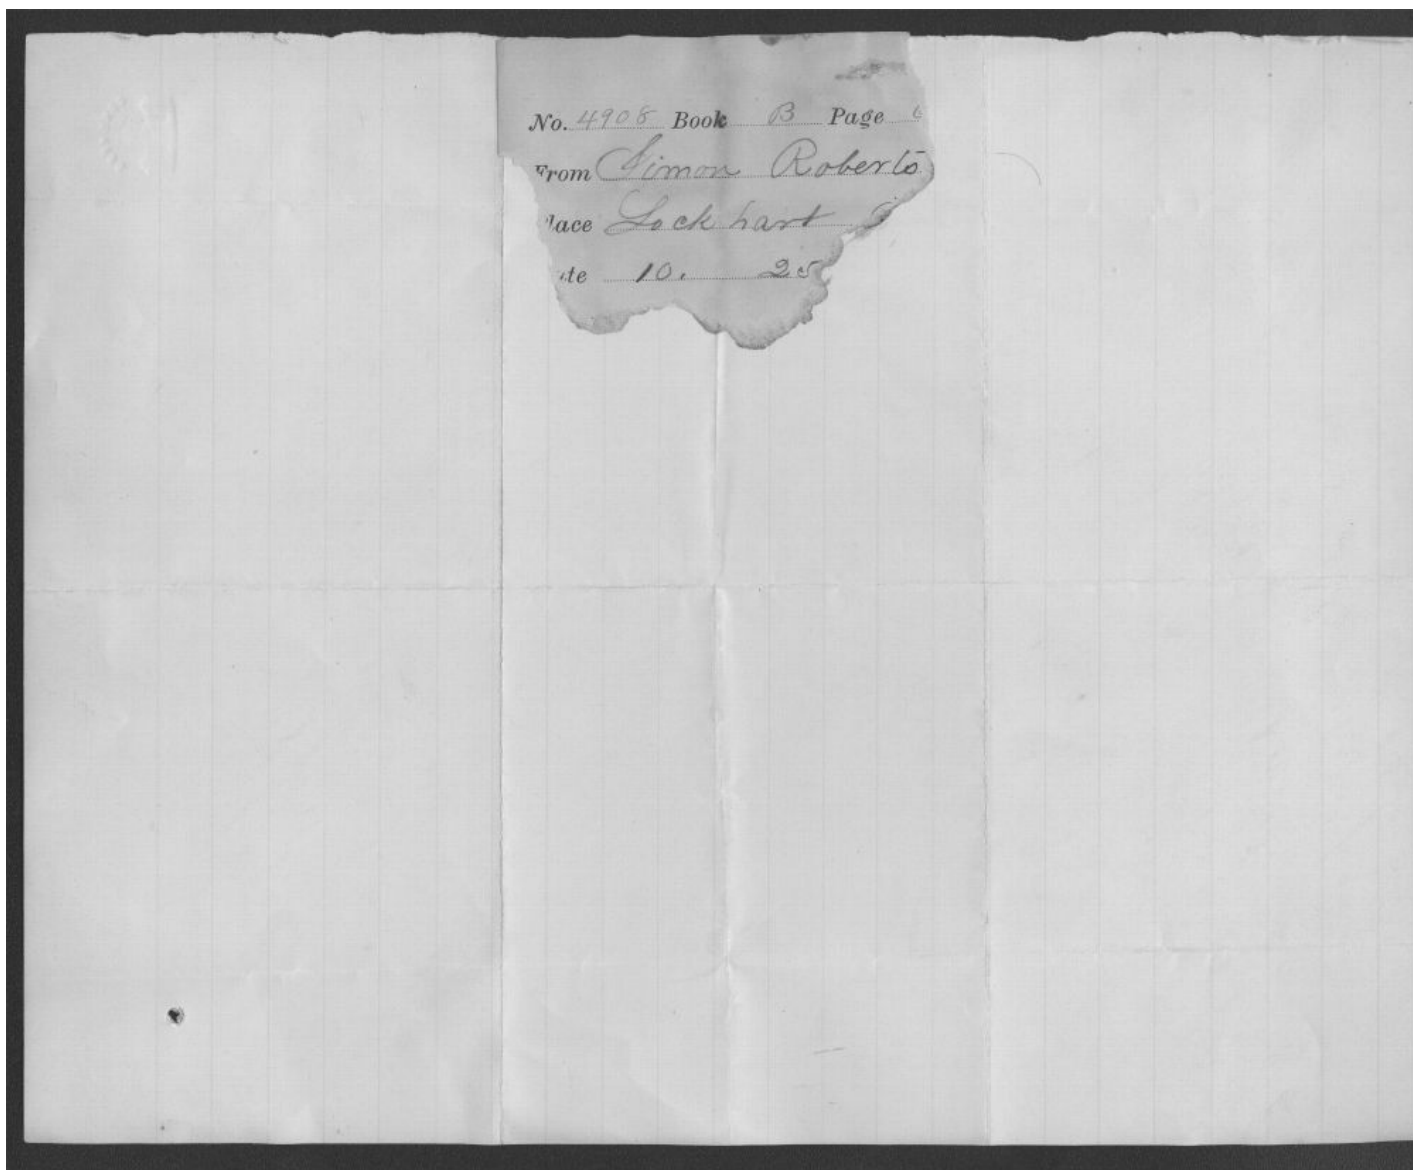 No. 4908 Book B Page
From Simon Roberts
lace Lockhart
te 10. 25